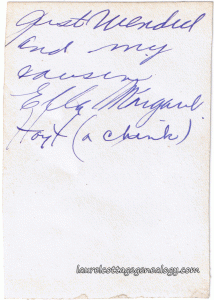 just Wendel
and my
cousin
Effa Margaret
Hoyt (a chink)
laurelcottagegenealogy.com